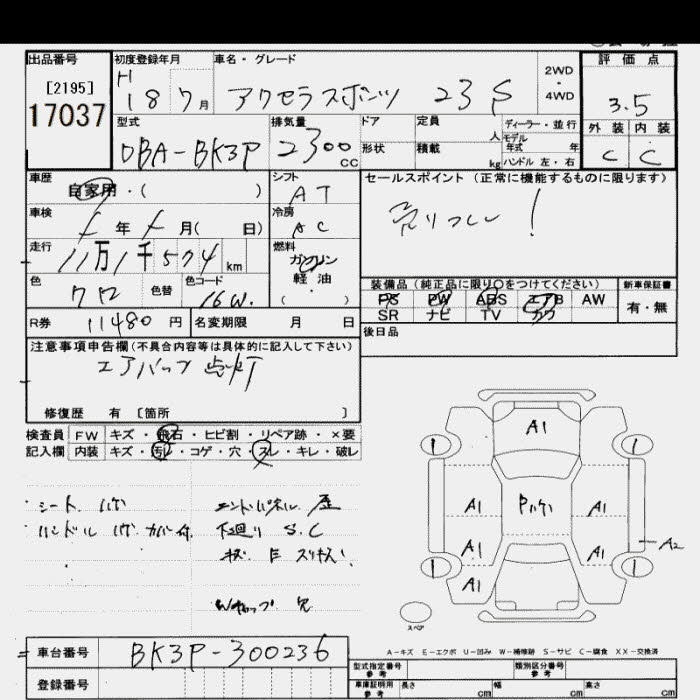 出品番号 初度登録年月 車名・グレード 2WD・4WD 評価点
[2195]
17037
H 18 7月 アクセラスポーツ 23S 3.5
型式 排気量 ドア 定員 人 ディーラー・並行 外装 内装
モデル年式 年
DBA-BK3P 2300cc 形状 積載 kg ハンドル 左・右 C C
車歴 シフト セールスポイント (正常に機能するものに限ります)
自家用・( ) AT
売りつくし!
車検 年 月( 日) 冷房 AC
走行 11万1千574km 燃料 ガソリン
軽油
・( )
色 色替 色コード 装備品(純正品に限り○をつけてください) 新車保証書
クロ 16W. PS PW ABS エアB AW 有・無
SR ナビ TV カワ
R券 11480円 名変期限 月 日 後日品
注意事項申告欄(不具合内容等は具体的に記入して下さい)
エアバック点灯
修復歴 有 [箇所 ]
検査員 FW キズ・飛石・ヒビ割・リペア跡・×要
記入欄 内装 キズ・汚レ・コゲ・穴・スレ・キレ・破レ
シート ハゲ エンドパネル 歪
ハンドル ハゲ カバー付 下廻り S.C
Wキャップ 欠
A1
A1 Pハゲ A1
A1 A1 A2
A1
スペア
A-キズ E-エクボ U-凹み W-補修跡 S-サビ C-腐食 XX-交換済
車台番号 BK3P-300236 型式指定番号 参考 類別区分番号 参考
登録番号 車庫証明用 参考 長さ cm 幅 cm 高さ cm